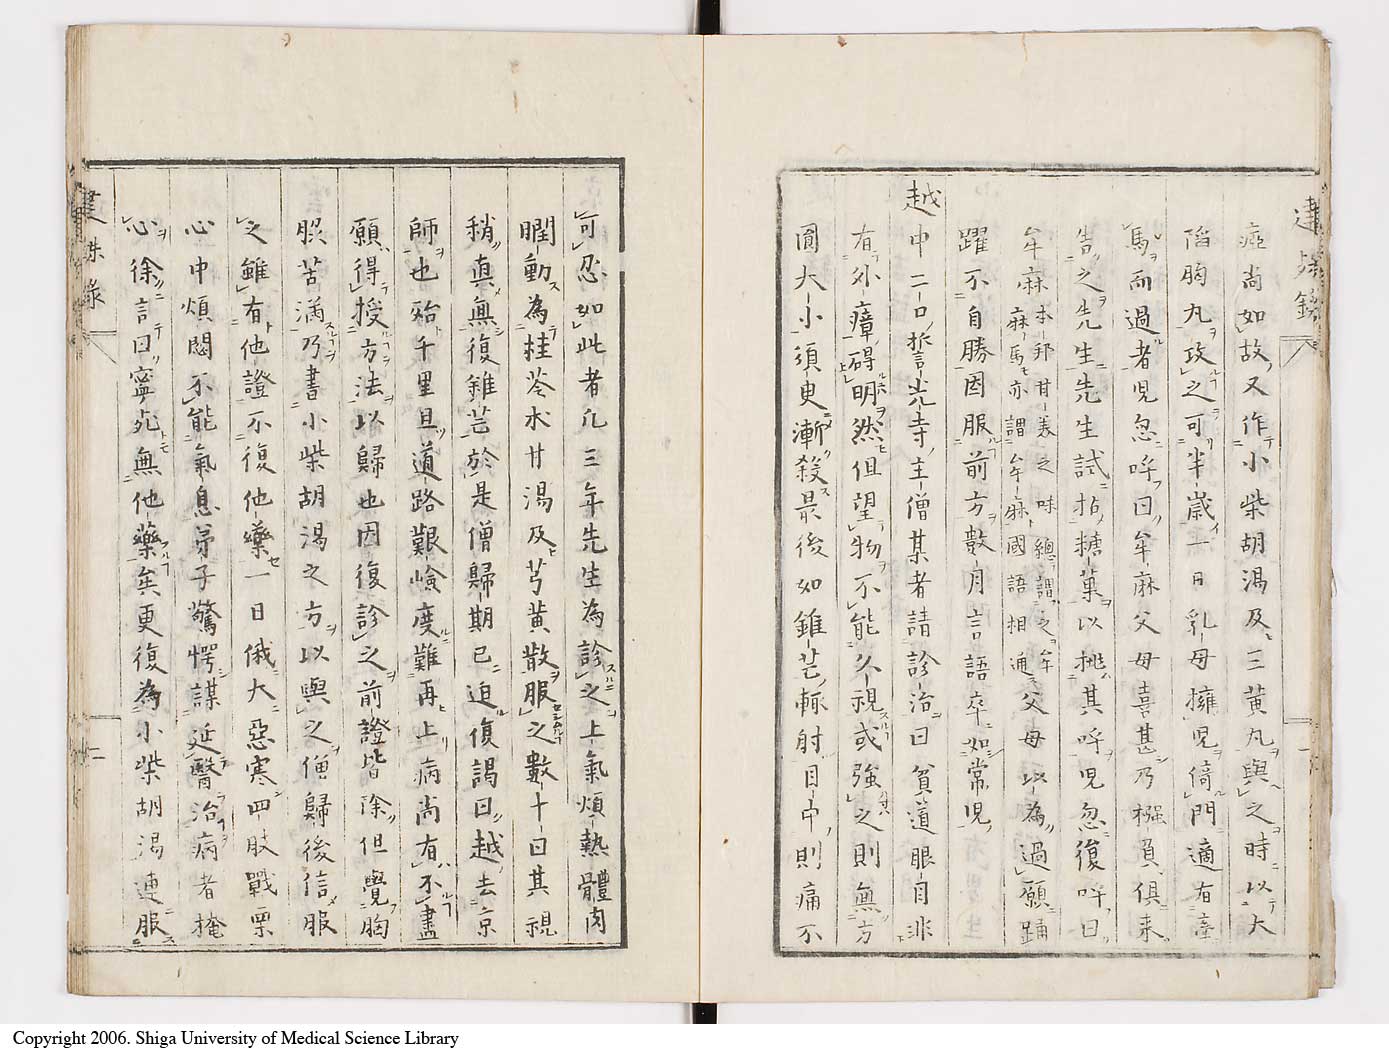 瘂尚如故又作小柴胡湯及三黄丸與之時以大
陷胸丸攻之可半歳一日乳母擁児倚門適有牽
馬而過者児忽呼曰牟麻父母喜甚乃襁負俱来
告之先生先生試拈糖菓以挑其呼児忽復呼曰
牟麻本邦甘美之味總謂之牟麻馬亦謂牟麻國語相通父母以為過願踊
躍不自勝因服前方數月言語卒如常児
越中二口誓光寺主僧某者請診治曰貧道眼目非
有外瘴碍明然但望物不能久視或強之則無方
圓大小須臾漸殺最後如錐芒輙射目中則痛不
可忍如此者凡三年先生為診之上氣煩熱體肉
瞤動為桂苓朮甘湯及芎黄散服之數十日其視
稍真無復錐芒於是僧歸期已迫復謁曰越去京
師也殆千里且道路艱嶮度難再上病尚有不盡
願得授方法以歸也因復診之前證皆除但覺胸
脇苦満乃書小柴胡湯之方以與之僧歸後信服
之雖有他證不復他藥一日俄大惡寒四肢戰栗
心中煩悶不能氣息弟子驚愕謀延醫治病者掩
心徐言曰寧死無他藥矣更復為小柴胡湯連服
建殊録
建殊録
一
二
Copyright 2006. Shiga University of Medical Science Library